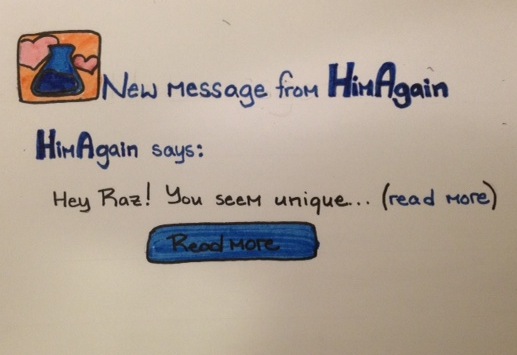 New message from HimAgain
HimAgain says:
Hey Raz! You seem unique... (read more)
Read more